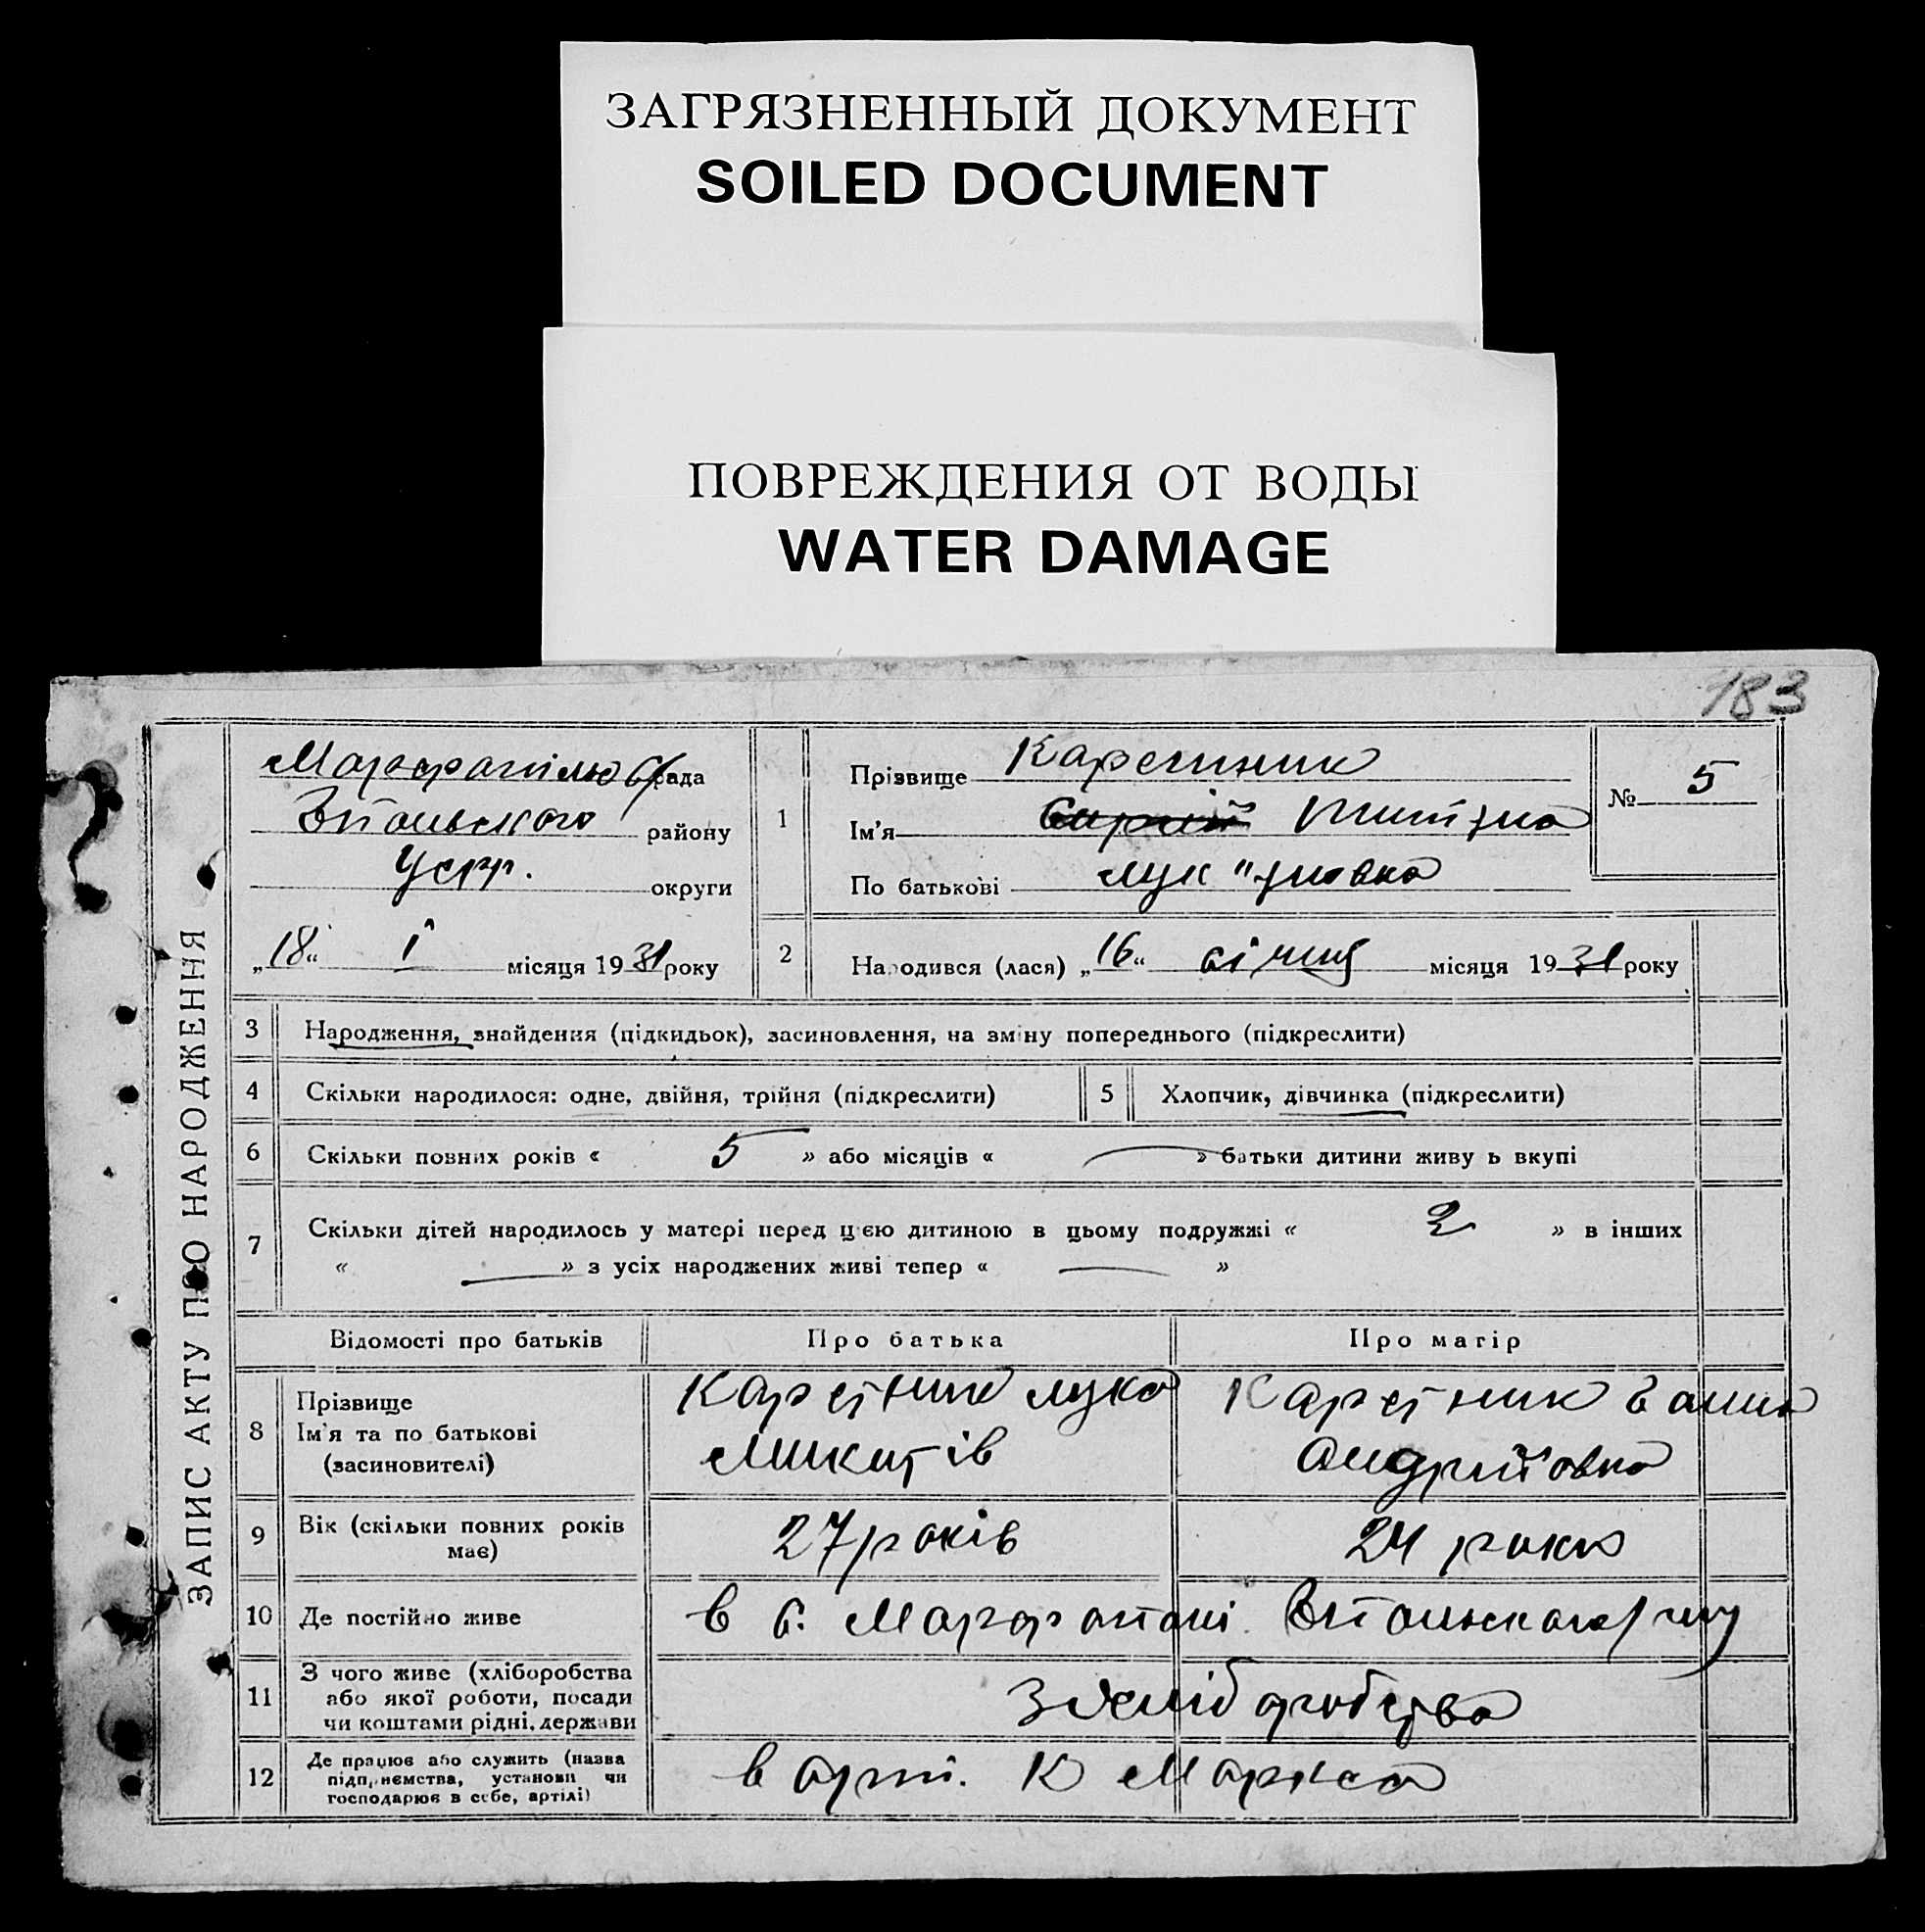 ЗАГРЯЗНЕННЫЙ ДОКУМЕНТ
SOILED DOCUMENT
ПОВРЕЖДЕНИЯ ОТ ВОДЫ
WATER DAMAGE
183
ЗАПИС АКТУ ПРО НАРОДЖЕННЯ
рада
району
Усрр. округи
„18“ І місяця 1931 року
1
Прізвище
Ім'я
По батькові
№ 5
2
Народився (лася) „16“ січня місяця 1931 року
3 Народження, знайдення (підкидьок), засиновлення, на зміну попереднього (підкреслити)
4 Скільки народилося: одне, двійня, трійня (підкреслити)
5 Хлопчик, дівчинка (підкреслити)
6 Скільки повних років « 5 » або місяців « — » батьки дитини живу ь вкупі
7 Скільки дітей народилось у матері перед цією дитиною в цьому подружжі « 2 » в інших
« — » з усіх народжених живі тепер « — »
Відомості про батьків
Про батька
Про матір
8
Прізвище
Ім'я та по батькові
(засиновителі)
Карстник Лука
Микитів
Карстник Ганна
Андрийовна
9
Вік (скільки повних років
має)
27 років
24 роки
10 Де постійно живе
в с.
11
З чого живе (хліборобства
або якої роботи, посади
чи коштами рідні, держави
З хліборобства
12
Де працює або служить (назва
підприємства, установи чи
господарює в себе, артілі)
в арт. К Маркса